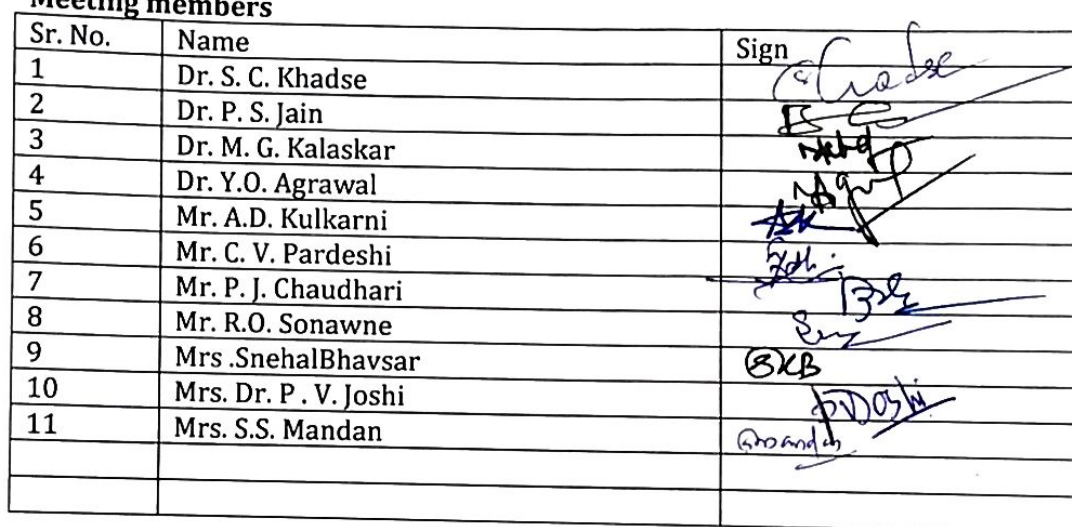 Meeting members
Sr. No. Name Sign
1 Dr. S. C. Khadse Khadse
2 Dr. P. S. Jain
3 Dr. M. G. Kalaskar
4 Dr. Y.O. Agrawal
5 Mr. A.D. Kulkarni AK
6 Mr. C. V. Pardeshi
7 Mr. P. J. Chaudhari
8 Mr. R.O. Sonawne
9 Mrs .SnehalBhavsar SKB
10 Mrs. Dr. P . V. Joshi PVJoshi
11 Mrs. S.S. Mandan